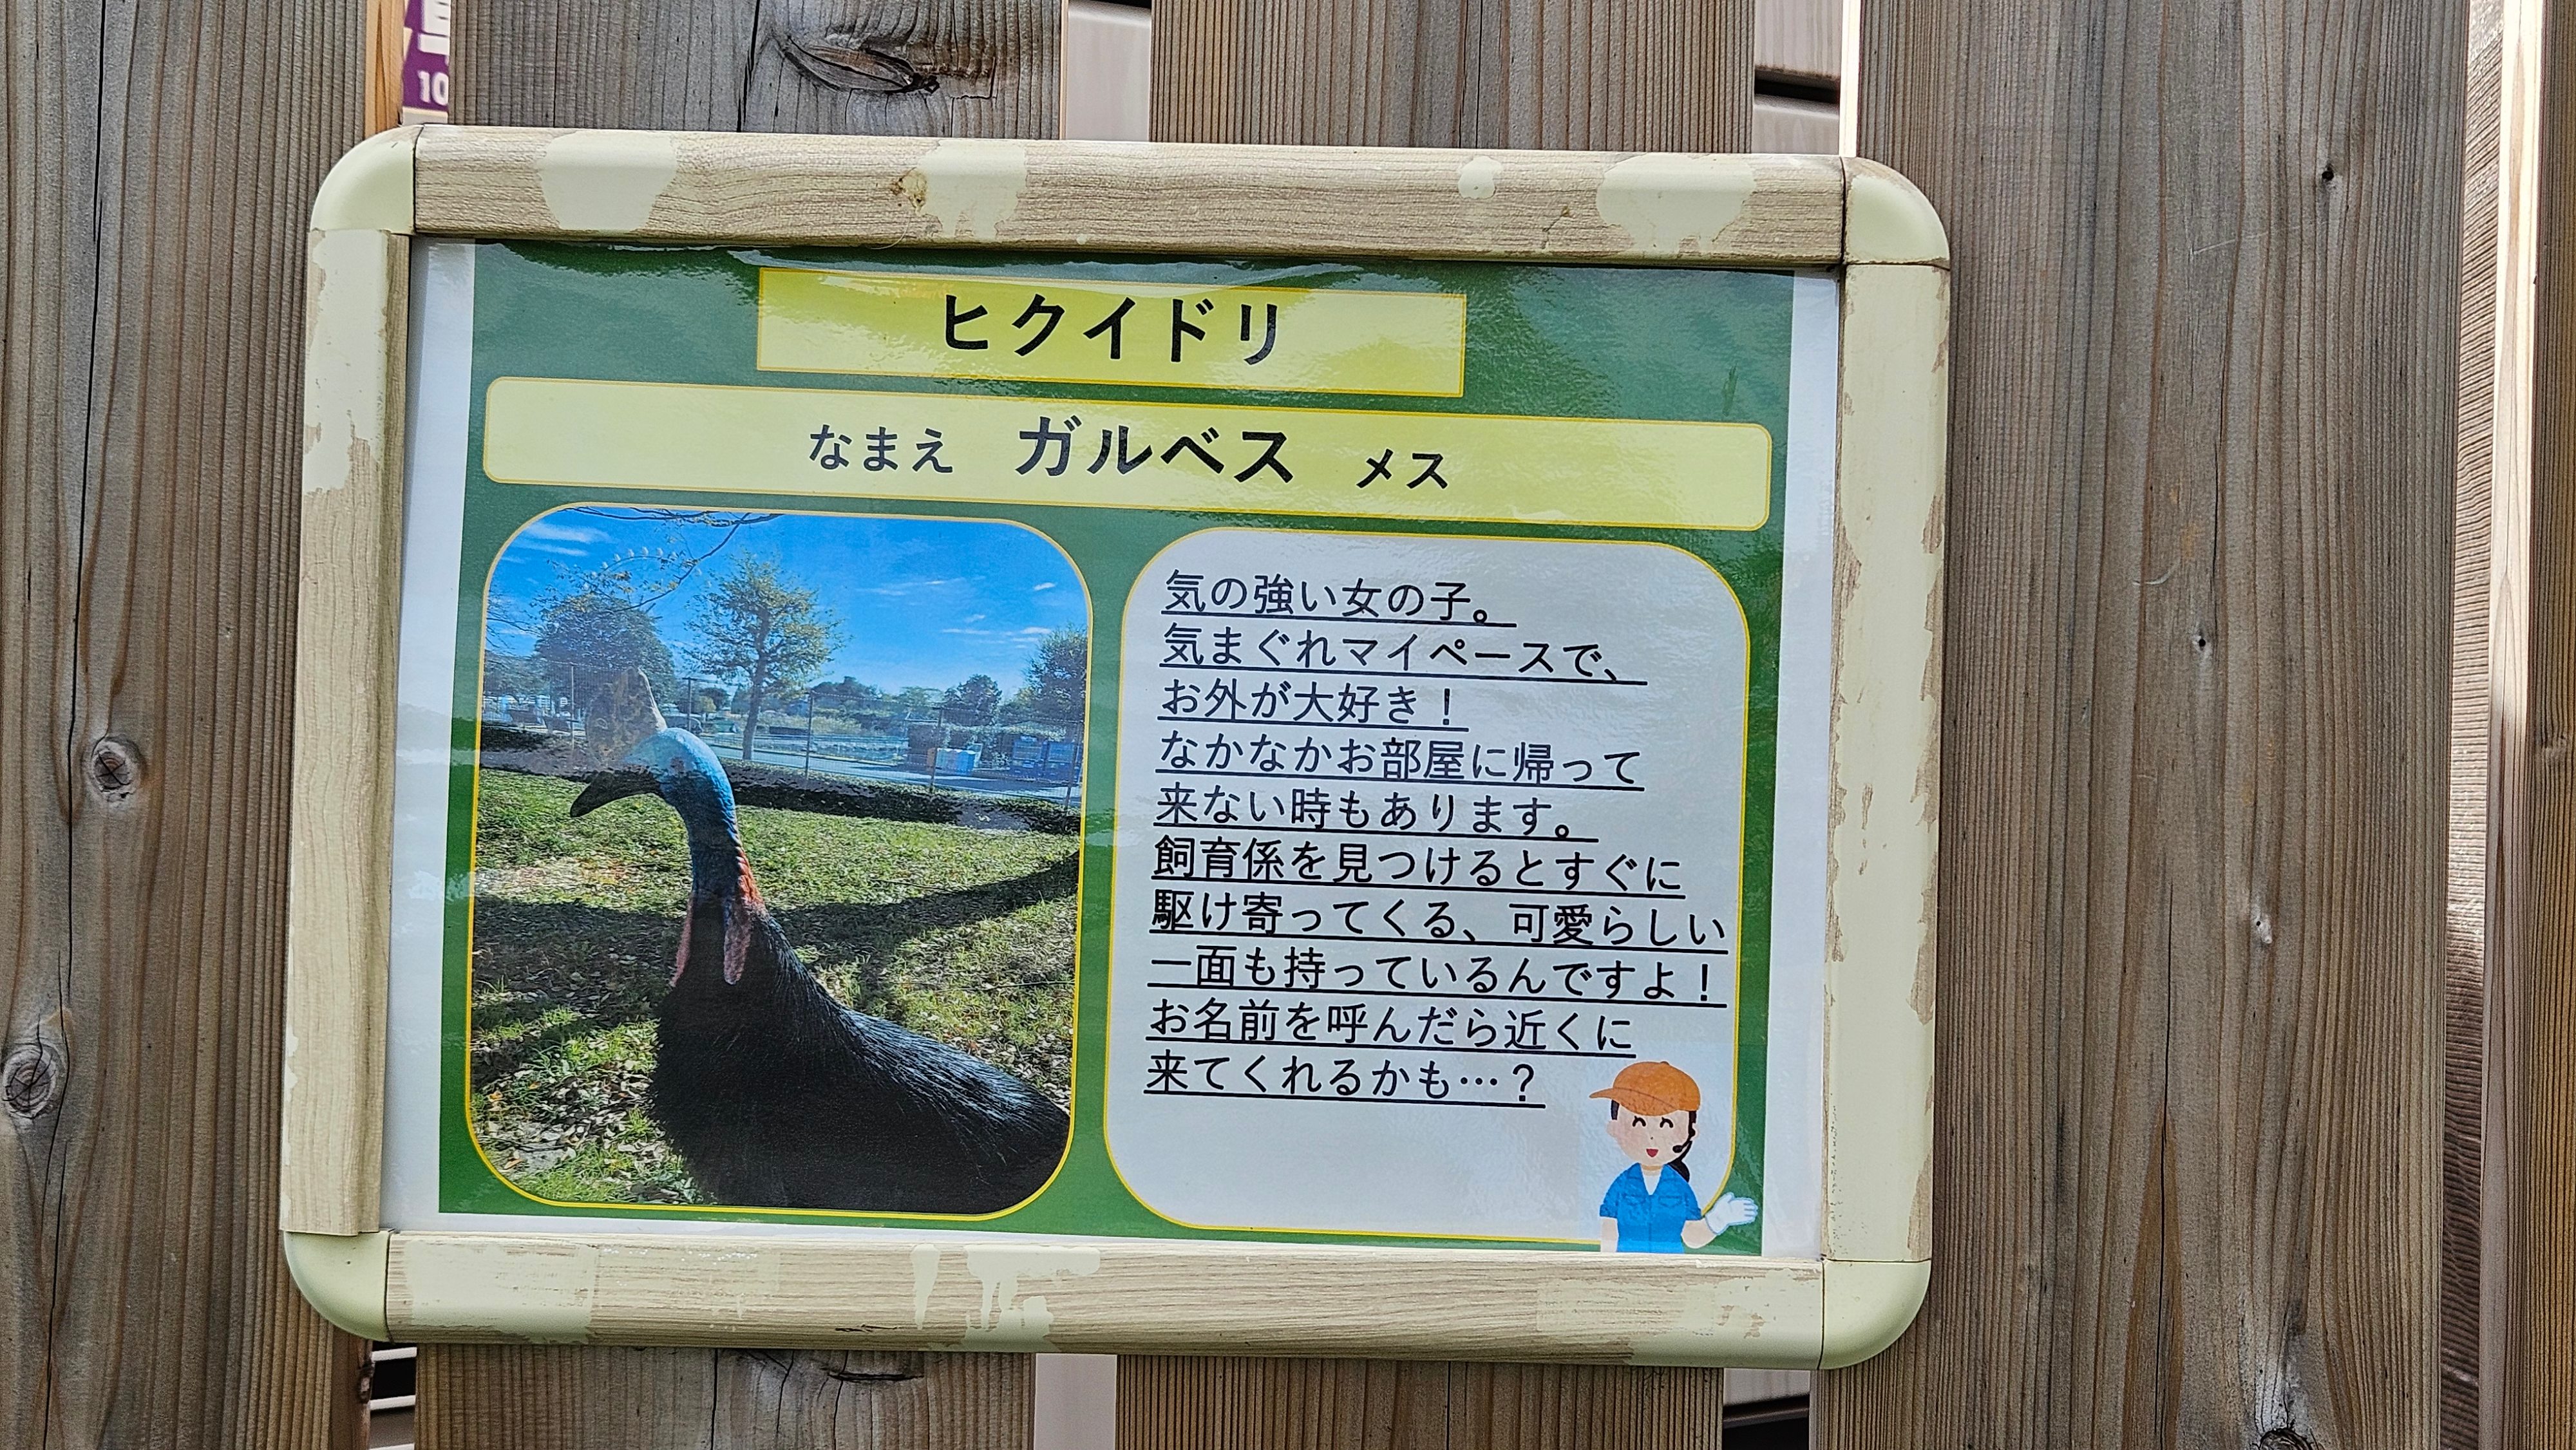 10
ヒクイドリ
なまえ ガルベス メス
気の強い女の子。
気まぐれマイペースで、
お外が大好き！
なかなかお部屋に帰って
来ない時もあります。
飼育係を見つけるとすぐに
駆け寄ってくる、可愛らしい
一面も持っているんですよ！
お名前を呼んだら近くに
来てくれるかも…？